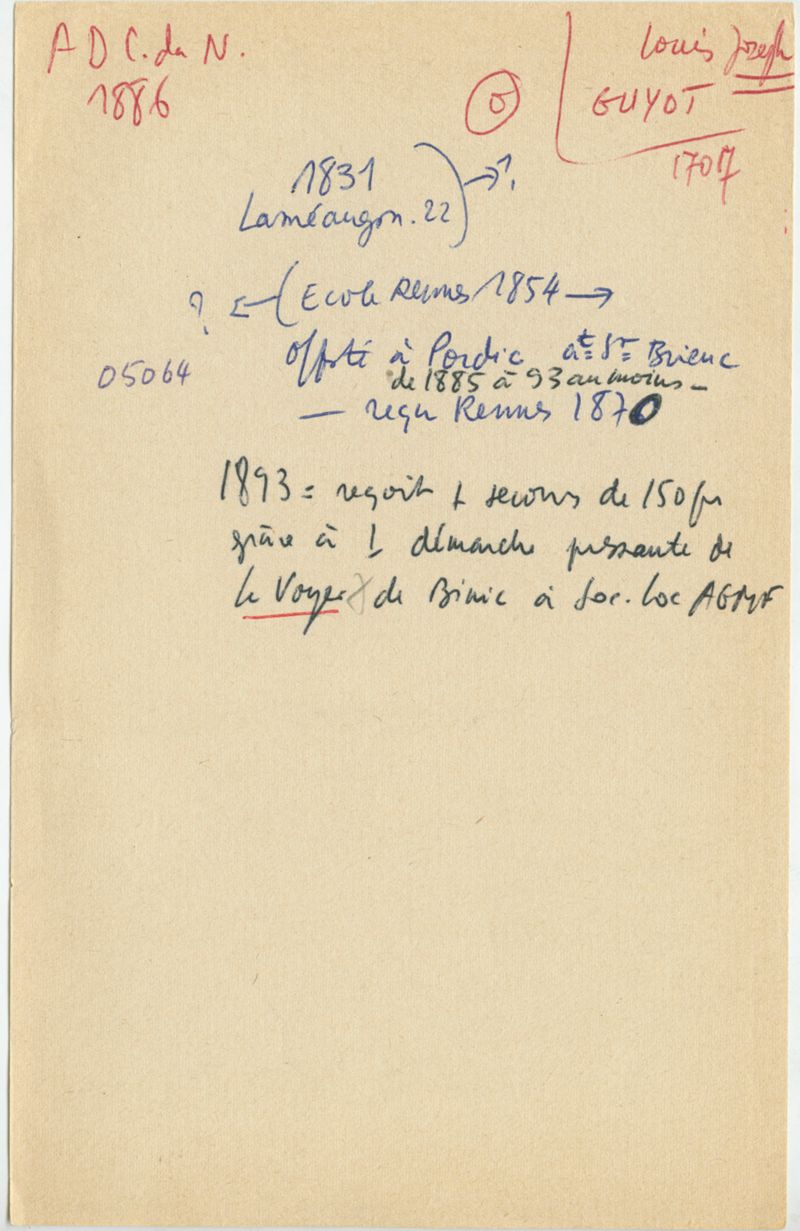 A D C. du N.
1886
Louis Joseph
GUYOT
1707
O
1831
Laméaugon. 22 → ?
? ← ( Ecole Rennes 1854 →
05064
offsté à Pordic at St Brieuc
de 1885 à 93 au moins –
– reçu Rennes 1870
1893 = reçoit 1 secours de 150 fr
grâce à 1 démarche pressante de
Le Voyer de Binic à Soc. loc AGMF